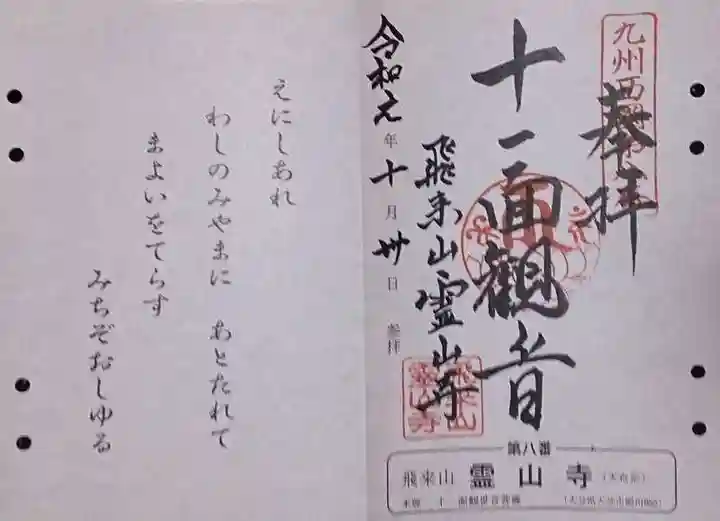 奉拝
十一面観音
飛来山霊山寺
令和元年十月卅日参拝
えにしあれ
わしのみやまに あとたれて
まよいをてらす
みちぞおしゆる
九州西国第
飛来山
霊山寺
第八番
飛来山 霊山寺(天台宗)
本尊 十一面観世音菩薩